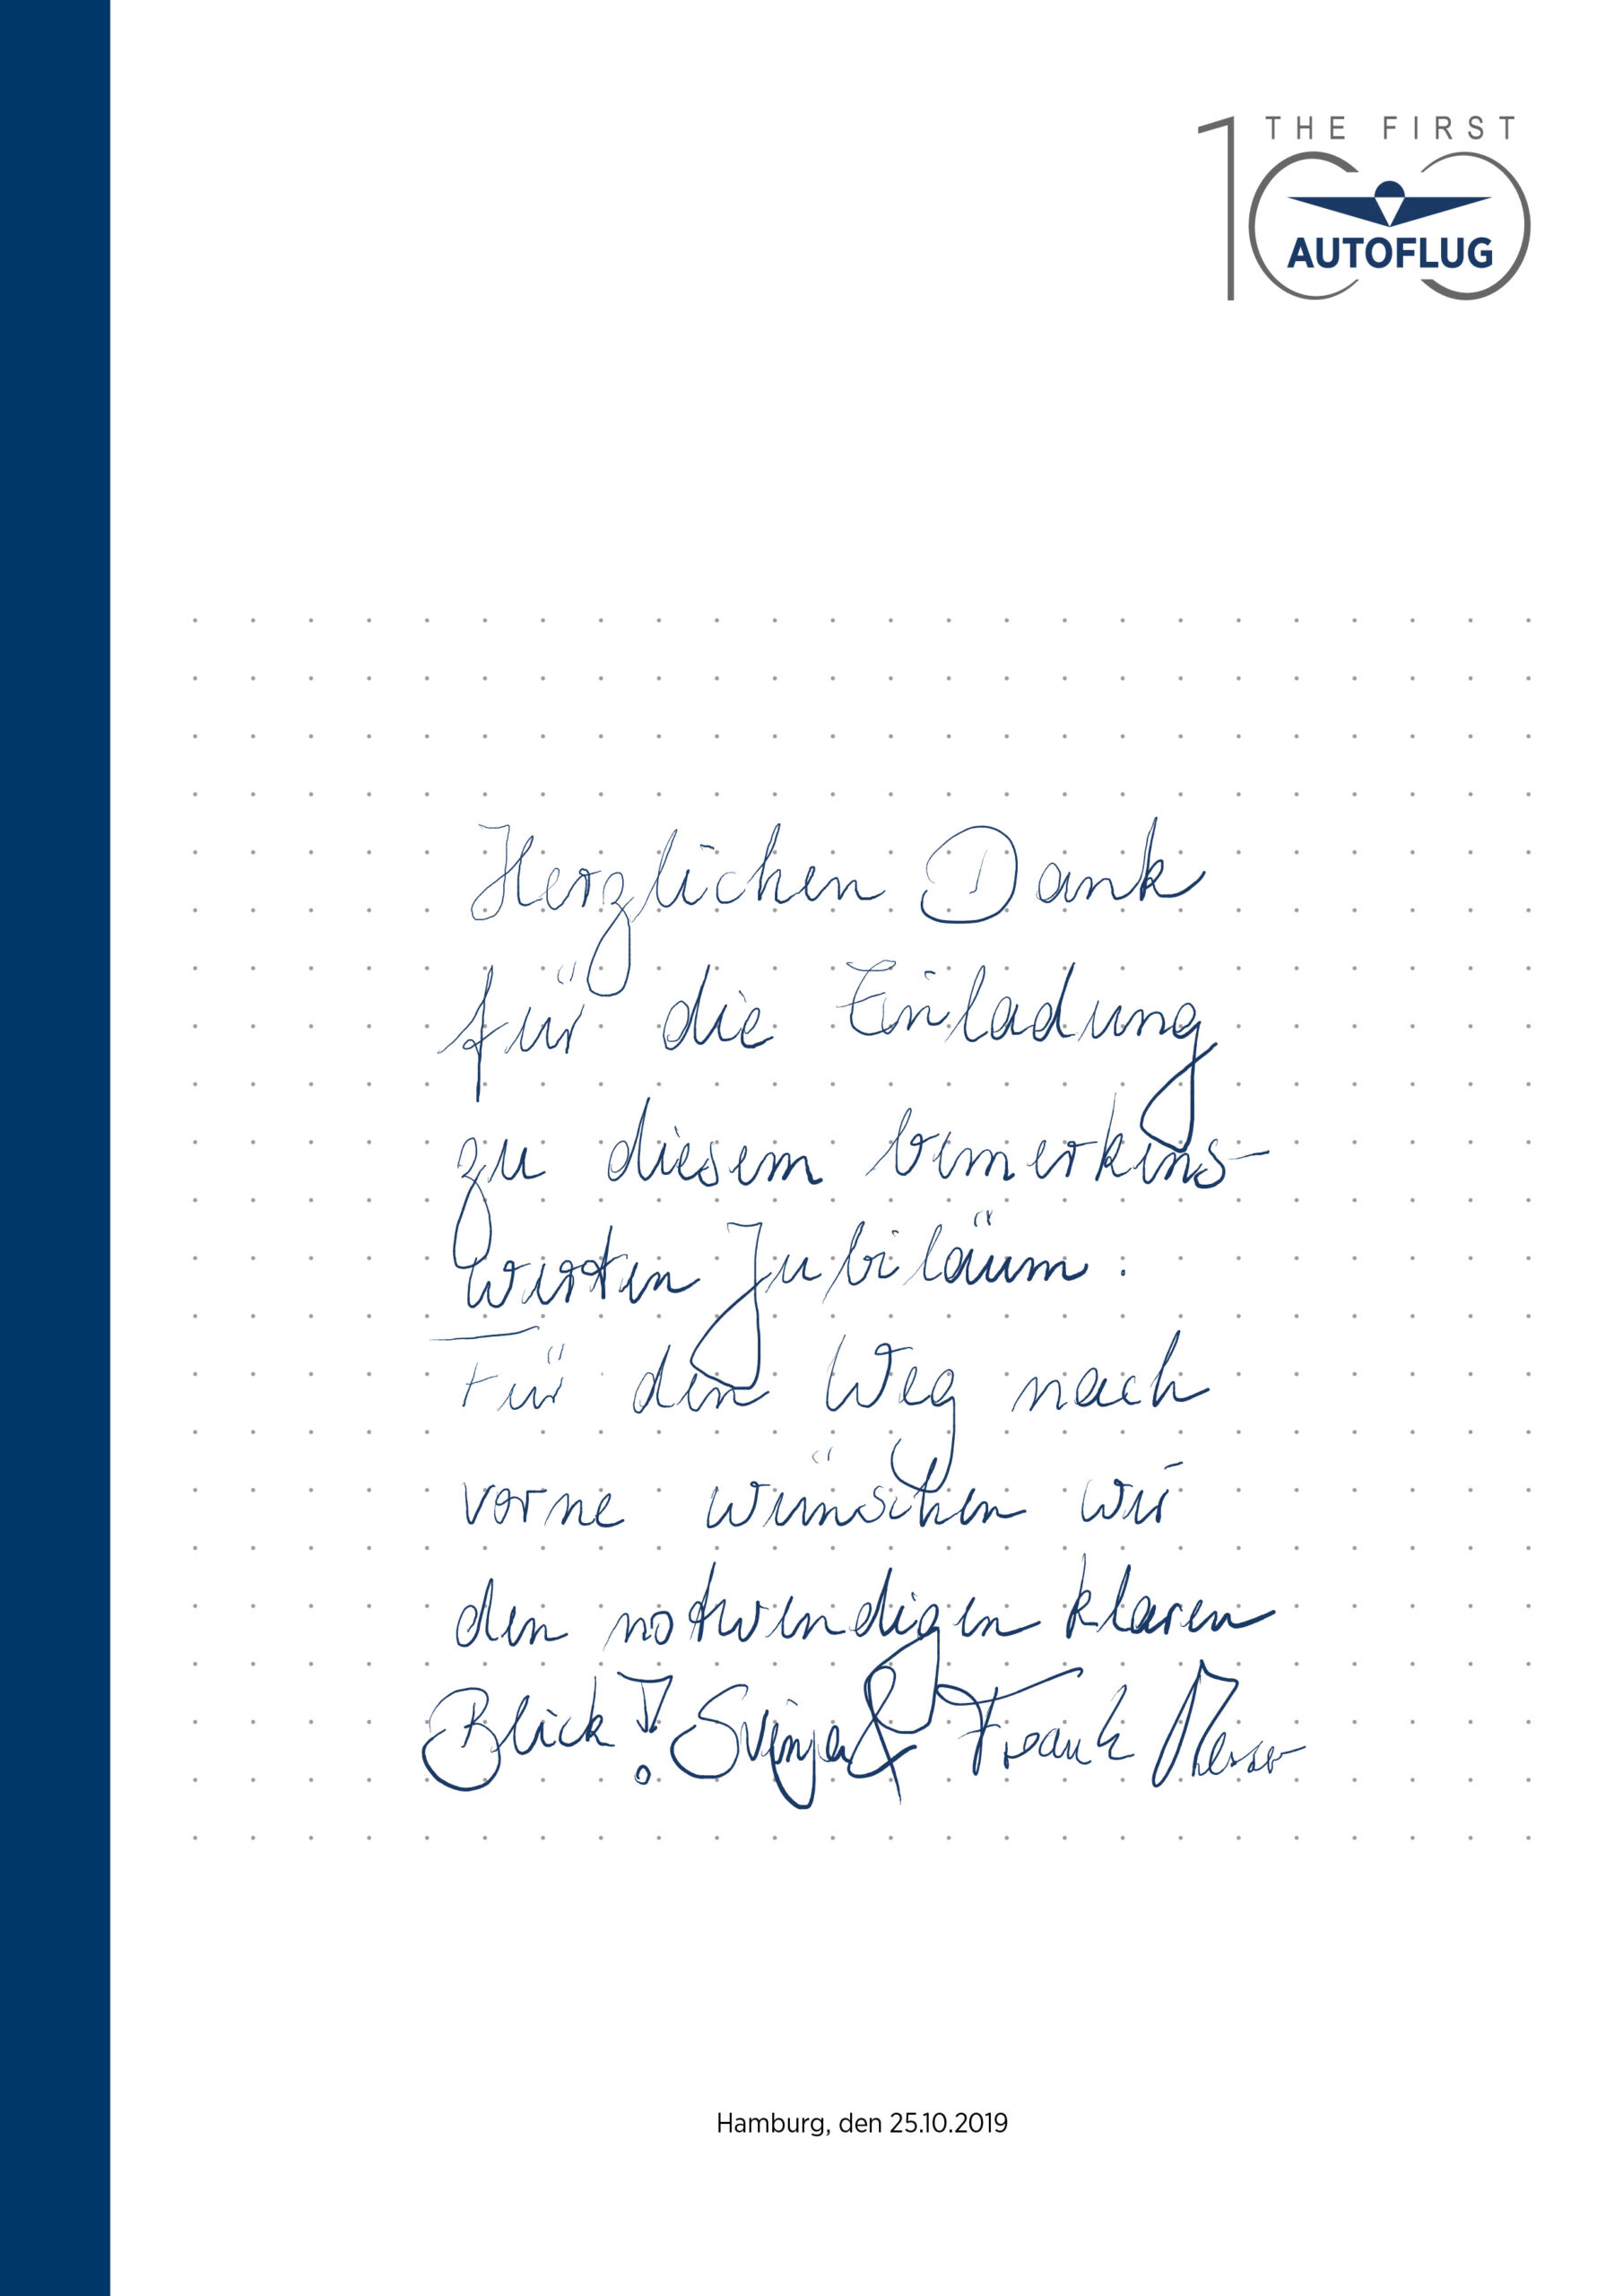 THE FIRST
100
AUTOFLUG
Herzlichen Dank
für die Einladung
zu diesem bemerkens-
werten Jubiläum.
Für den Weg nach
vorne wünschen wir
den notwendigen klaren
Blick! Svenja & Frank
Hamburg, den 25.10.2019